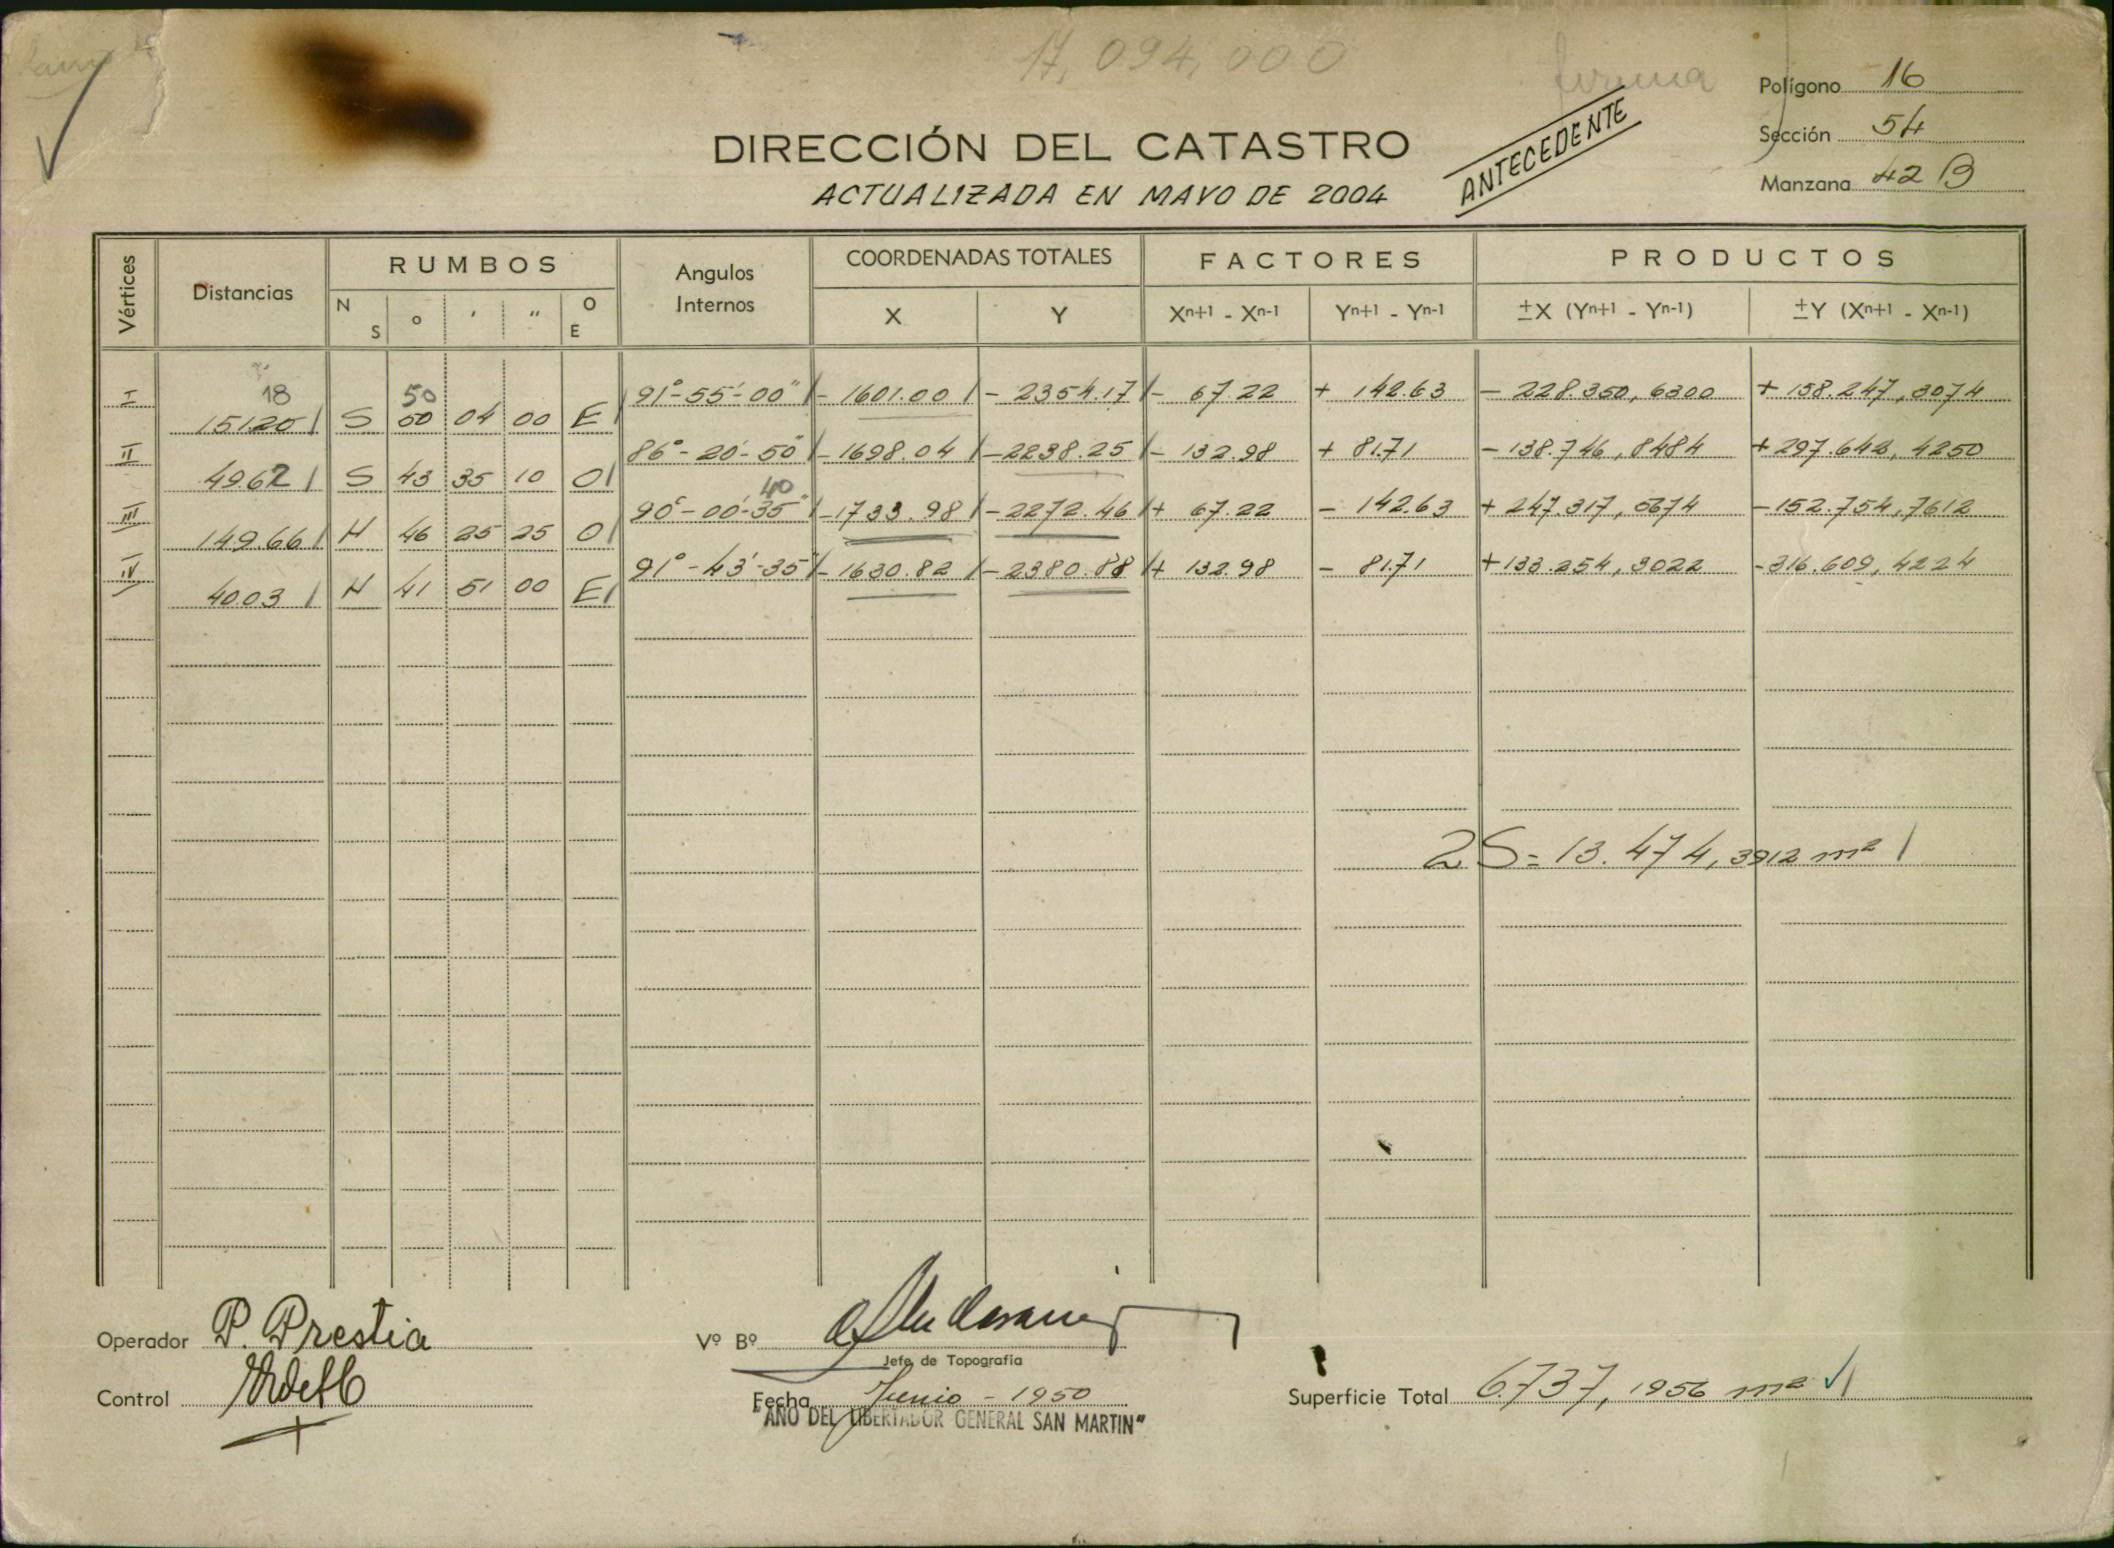 17,094,000
firma
Polígono 16
Sección 54
Manzana 42 B
DIRECCIÓN DEL CATASTRO
ACTUALIZADA EN MAYO DE 2004
ANTECEDENTE
Vértices Distancias RUMBOS Angulos Internos COORDENADAS TOTALES FACTORES PRODUCTOS
N S ° ' " O E X Y Xn+1 - Xn-1 Yn+1 - Yn-1 ±X (Yn+1 - Yn-1) ±Y (Xn+1 - Xn-1)
18 50
I 91°-55'-00" - 1601.00 - 2354.17 - 67.22 + 142.63 - 228.350,6300 + 158.247,3074
151.20 S 50 04 00 E
II 86°-20'-50" - 1698.04 - 2238.25 - 132.98 + 81.71 - 138.746,8484 + 297.642,4250
49.62 S 43 35 10 O
40
III 90°-00'-35" - 1733.98 - 2272.46 + 67.22 - 142.63 + 247.317,5674 - 152.754,7612
149.66 N 46 25 25 O
IV 91°-43'-35" - 1630.82 - 2380.88 + 132.98 - 81.71 + 133.254,3022 - 316.609,4224
40.03 N 41 51 00 E
2S = 13.474,3912 m²
Operador P. Prestia
Vº Bº
Jefe de Topografía
Control
Fecha Junio - 1950
Superficie Total 6.737,1956 m²
"AÑO DEL LIBERTADOR GENERAL SAN MARTIN"